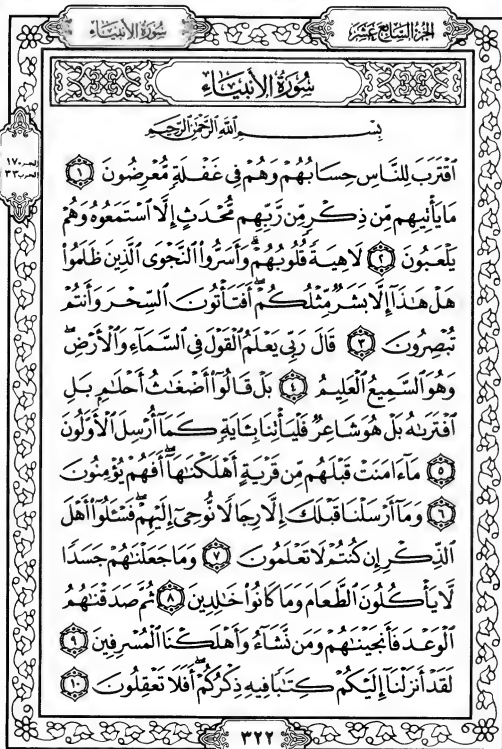 الجُزْءُ السَّابِعَ عَشَرَ
سُورَةُ الأَنْبِيَاءِ
سُورَةُ الأَنْبِيَاءِ
الجزء ١٧
الحزب ٣٣
بِسْمِ ٱللَّهِ ٱلرَّحْمَٰنِ ٱلرَّحِيمِ
ٱقْتَرَبَ لِلنَّاسِ حِسَابُهُمْ وَهُمْ فِى غَفْلَةٍ مُّعْرِضُونَ ١
مَا يَأْتِيهِم مِّن ذِكْرٍ مِّن رَّبِّهِم مُّحْدَثٍ إِلَّا ٱسْتَمَعُوهُ وَهُمْ
يَلْعَبُونَ ٢ لَاهِيَةً قُلُوبُهُمْ ۗ وَأَسَرُّوا۟ ٱلنَّجْوَى ٱلَّذِينَ ظَلَمُوا۟
هَلْ هَٰذَآ إِلَّا بَشَرٌ مِّثْلُكُمْ ۖ أَفَتَأْتُونَ ٱلسِّحْرَ وَأَنتُمْ
تُبْصِرُونَ ٣ قَالَ رَبِّى يَعْلَمُ ٱلْقَوْلَ فِى ٱلسَّمَآءِ وَٱلْأَرْضِ ۖ
وَهُوَ ٱلسَّمِيعُ ٱلْعَلِيمُ ٤ بَلْ قَالُوٓا۟ أَضْغَٰثُ أَحْلَٰمٍۭ بَلِ
ٱفْتَرَىٰهُ بَلْ هُوَ شَاعِرٌ فَلْيَأْتِنَا بِـَٔايَةٍ كَمَآ أُرْسِلَ ٱلْأَوَّلُونَ
٥ مَآ ءَامَنَتْ قَبْلَهُم مِّن قَرْيَةٍ أَهْلَكْنَٰهَآ ۖ أَفَهُمْ يُؤْمِنُونَ
٦ وَمَآ أَرْسَلْنَا قَبْلَكَ إِلَّا رِجَالًا نُّوحِىٓ إِلَيْهِمْ ۖ فَسْـَٔلُوٓا۟ أَهْلَ
ٱلذِّكْرِ إِن كُنتُمْ لَا تَعْلَمُونَ ٧ وَمَا جَعَلْنَٰهُمْ جَسَدًا
لَّا يَأْكُلُونَ ٱلطَّعَامَ وَمَا كَانُوا۟ خَٰلِدِينَ ٨ ثُمَّ صَدَقْنَٰهُمُ
ٱلْوَعْدَ فَأَنجَيْنَٰهُمْ وَمَن نَّشَآءُ وَأَهْلَكْنَا ٱلْمُسْرِفِينَ ٩
لَقَدْ أَنزَلْنَآ إِلَيْكُمْ كِتَٰبًا فِيهِ ذِكْرُكُمْ ۖ أَفَلَا تَعْقِلُونَ ١٠
٣٢٢